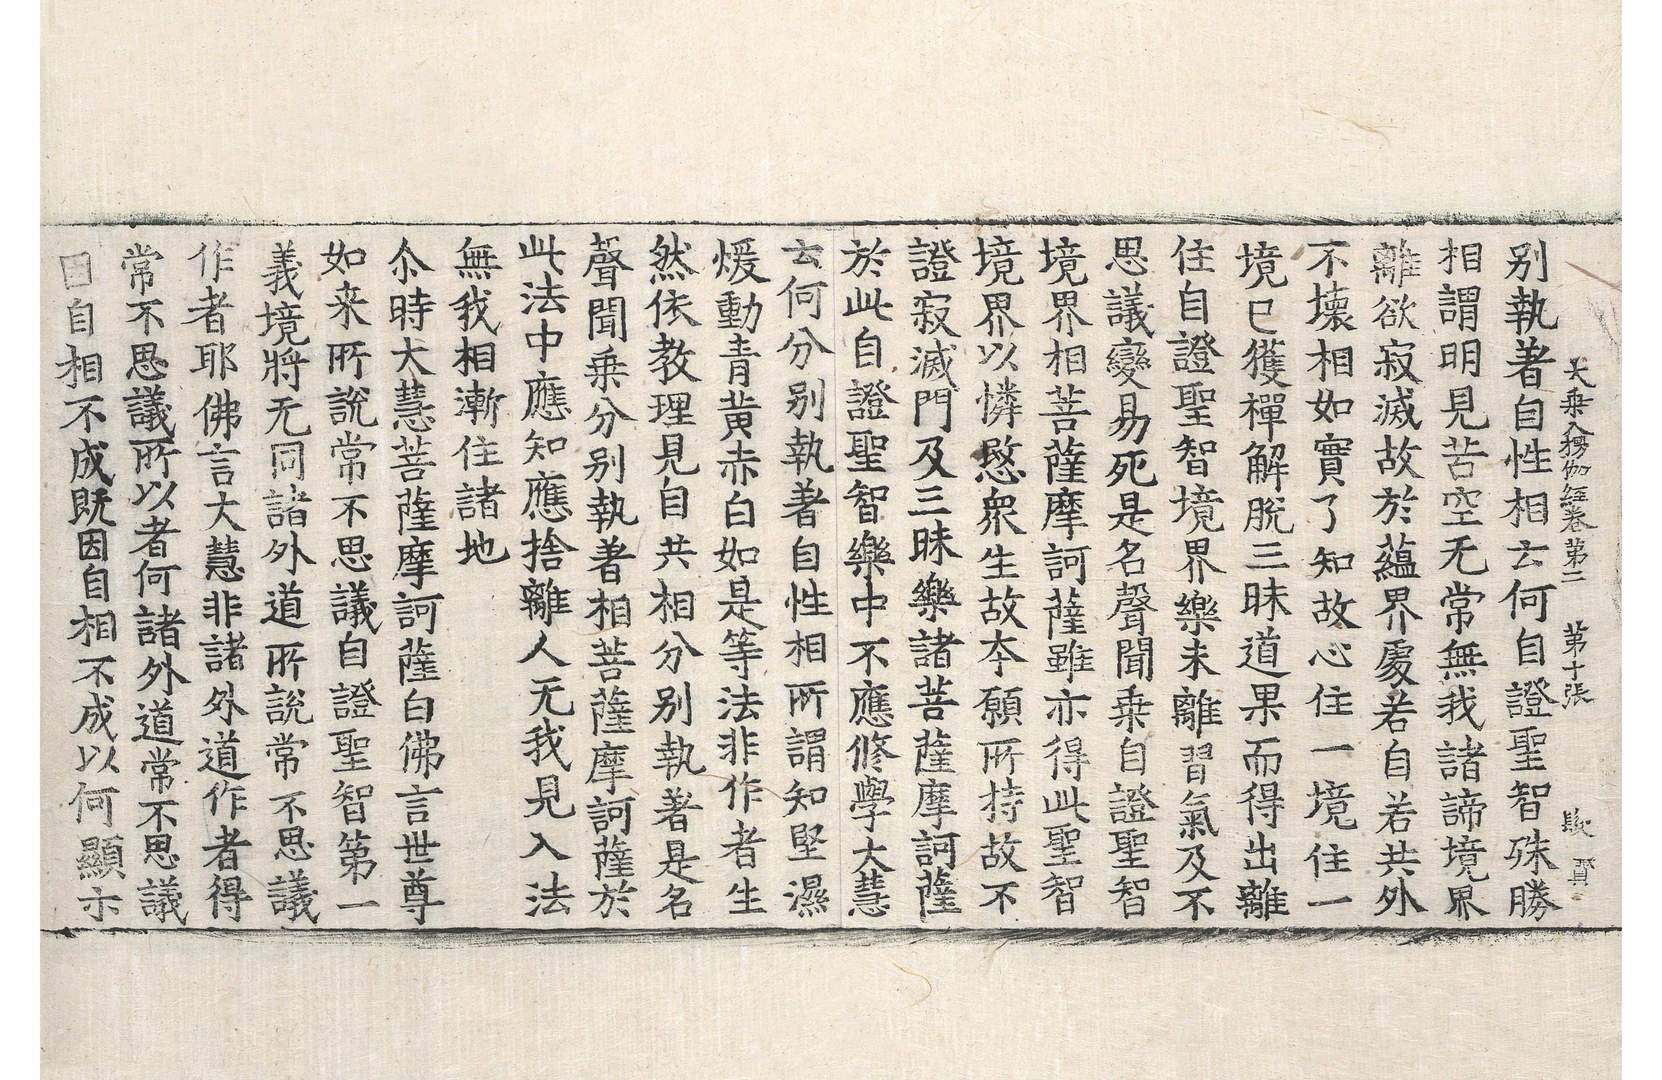 大乘入楞伽經卷第二　第十張　賢
別執著自性相云何自證聖智殊勝
相謂明見苦空无常無我諸諦境界
離欲寂滅故於蘊界處若自若共外
不壞相如實了知故心住一境住一
境已獲禪解脫三昧道果而得出離
住自證聖智境界樂未離習氣及不
思議變易死是名聲聞乗自證聖智
境界相菩薩摩訶薩雖亦得此聖智
境界以憐愍眾生故本願所持故不
證寂滅門及三昧樂諸菩薩摩訶薩
於此自證聖智樂中不應修學大慧
云何分別執著自性相所謂知堅濕
煖動青黃赤白如是等法非作者生
然依教理見自共相分別執著是名
聲聞乗分別執著相菩薩摩訶薩於
此法中應知應捨離人无我見入法
無我相漸住諸地
尒時大慧菩薩摩訶薩白佛言世尊
如来所說常不思議自證聖智第一
義境將无同諸外道所說常不思議
作者耶佛言大慧非諸外道作者得
常不思議所以者何諸外道常不思議
因自相不成既因自相不成以何顯示